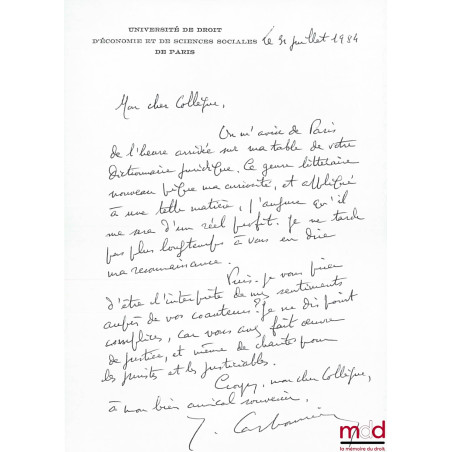 UNIVERSITÉ DE DROIT
D'ÉCONOMIE ET DE SCIENCES SOCIALES
DE PARIS
Le 31 juillet 1984
Mon cher Collègue,
On m'avise de Paris
de l'heureuse arrivée sur ma table de votre
Dictionnaire juridique. Ce genre littéraire
nouveau pique ma curiosité, et appliqué
à une telle matière, j'augure qu'il
me sera d'un réel profit. Je ne tarde
pas plus longtemps à vous en dire
ma reconnaissance.
Puis-je vous prier
d'être l'interprète de mes sentiments
auprès de vos coauteurs? Je ne dis point
complices, car vous avez fait œuvre
de justice, et même de charité pour
les juristes et les justiciables.
Croyez, mon cher Collègue,
à mon bien amical souvenir,
J. Carbonnier
mdd
la mémoire du droit.